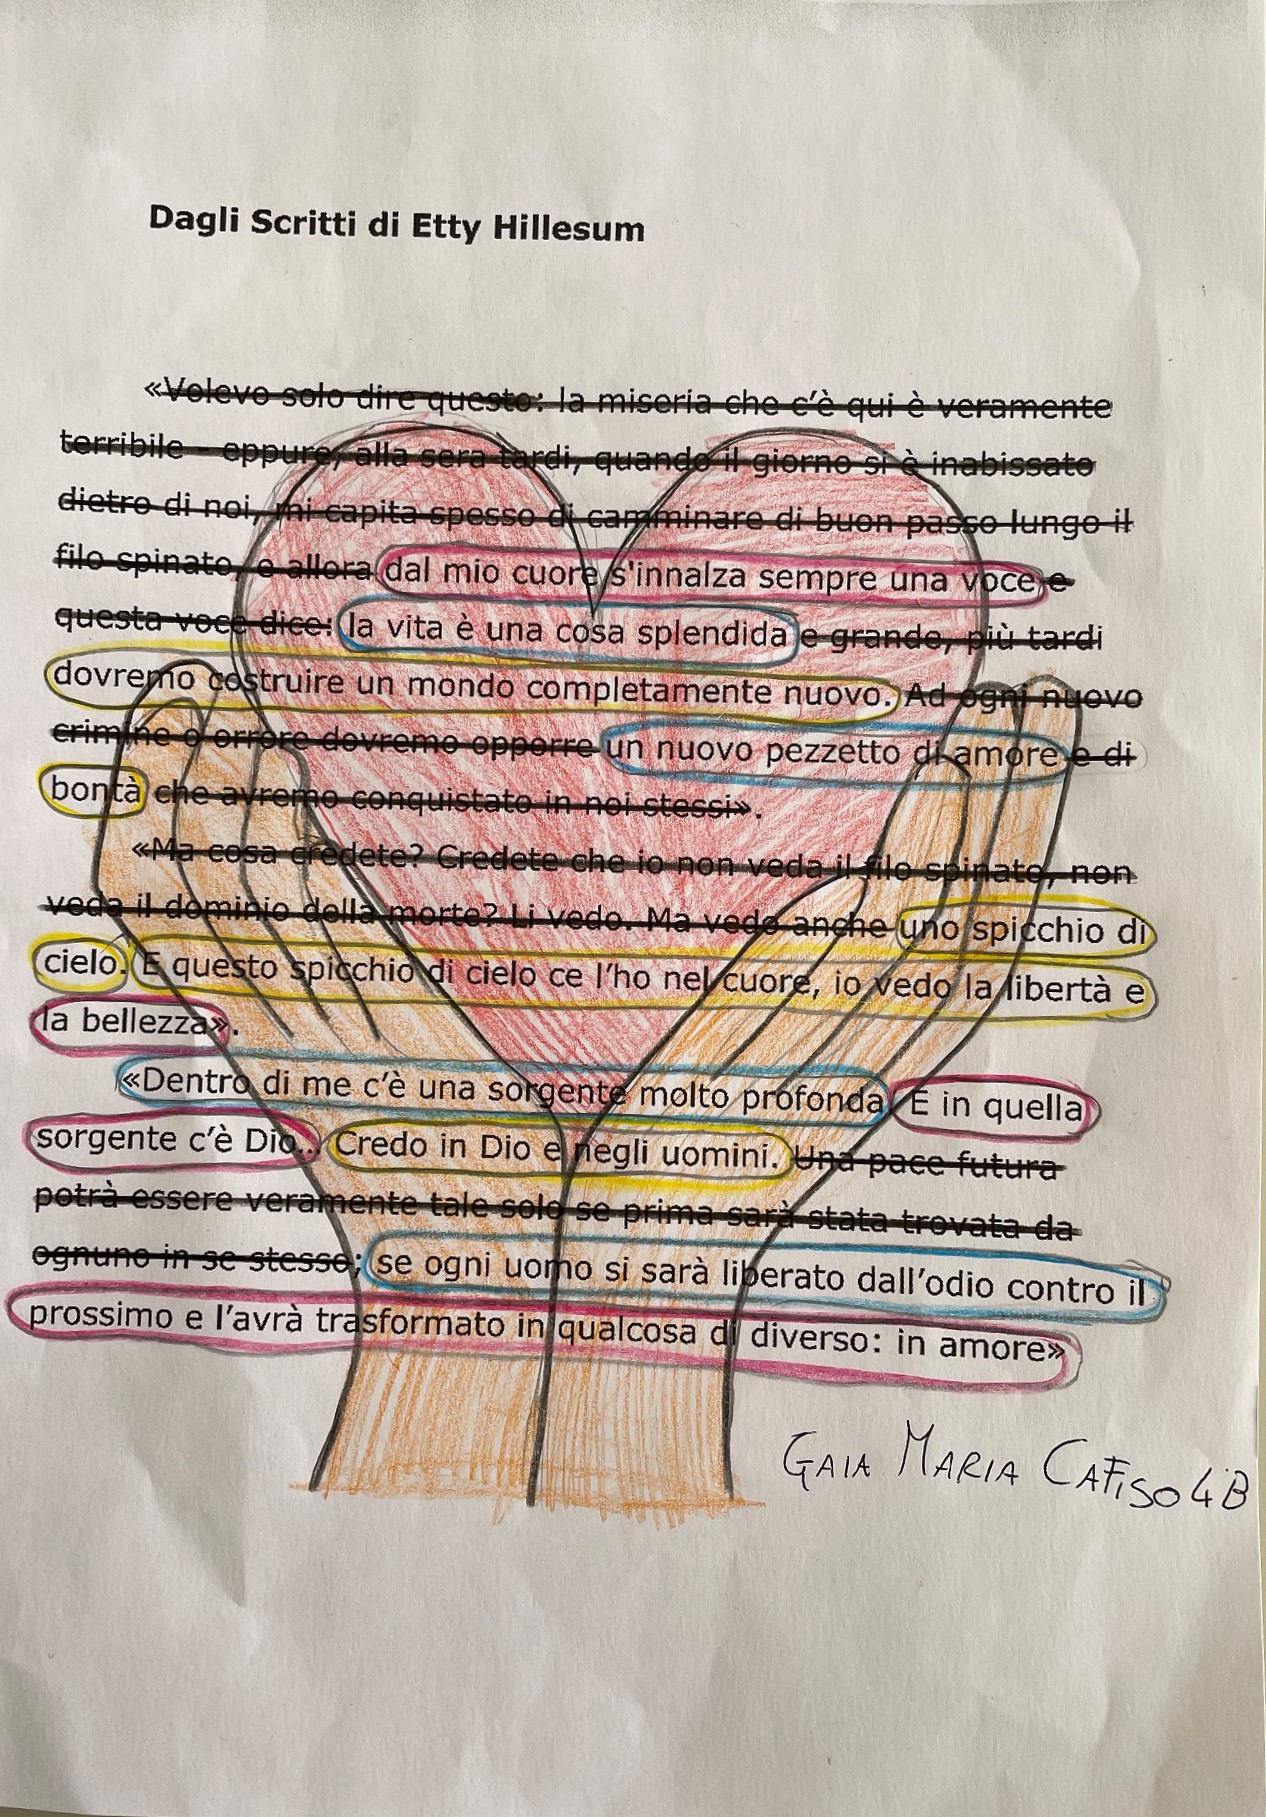 Dagli Scritti di Etty Hillesum
«Volevo solo dire questo: la miseria che c'è qui è veramente
terribile - eppure, alla sera tardi, quando il giorno si è inabissato
dietro di noi, mi capita spesso di camminare di buon passo lungo il
filo spinato, e allora dal mio cuore s'innalza sempre una voce e
questa voce dice: la vita è una cosa splendida e grande, più tardi
dovremo costruire un mondo completamente nuovo. Ad ogni nuovo
crimine o orrore dovremo opporre un nuovo pezzetto di amore e di
bontà che avremo conquistato in noi stessi».
«Ma cosa credete? Credete che io non veda il filo spinato, non
veda il dominio della morte? Li vedo. Ma vedo anche uno spicchio di
cielo. E questo spicchio di cielo ce l'ho nel cuore, io vedo la libertà e
la bellezza».
«Dentro di me c'è una sorgente molto profonda. E in quella
sorgente c'è Dio... Credo in Dio e negli uomini. Una pace futura
potrà essere veramente tale solo se prima sarà stata trovata da
ognuno in se stesso; se ogni uomo si sarà liberato dall'odio contro il
prossimo e l'avrà trasformato in qualcosa di diverso: in amore»
GAIA MARIA CAFISO 4B